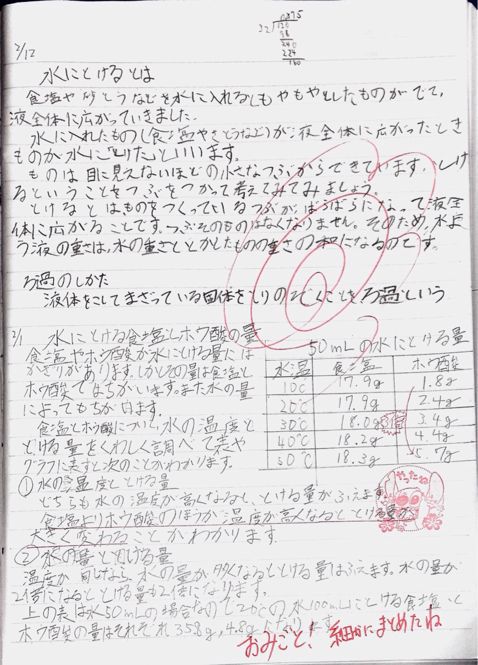 2/12
水にとけるとは
食塩や砂とうなどを水に入れるともやもやとしたものがでて、
液全体に広がっていきました。
水に入れたもの(食塩やさとうなど)が液全体に広がったとき
ものが水に「とけた」といいます。
ものは目に見えないほどの小さなつぶからできています。とけ
るということをつぶをつかって考えてみてみましょう。
とけるとはものをつくっているつぶが、ばらばらになって液全
体に広がることです。つぶそのものはなくなりません。そのため、水よ
う液の重さは、水の重さととかしたものの重さの和になるのです。
ろ過のしかた
液体をこしてまざっている固体をとりのぞくことをろ過という
2/1 水にとける食塩とホウ酸の量
食塩やホウ酸が水にとける量には
かぎりがあります。しかしその量は食塩と
ホウ酸でちがいます。また水の量
によってもちがいます。
食塩とホウ酸について、水の温度と
とける量をくわしく調べて表や
グラフに表すと次のことがわかります。
50mLの水にとける量
水温 食塩 ホウ酸
10℃ 17.9g 1.8g
20℃ 17.9g 2.4g
30℃ 18.0g 3.4g
40℃ 18.2g 4.4g
50℃ 18.3g 5.7g
①水の温度ととける量
どちらも水の温度が高くなると、とける量がふえます。
食塩よりホウ酸のほうが温度が高くなるととける量が
大きく変わることがわかります。
やったね
②水の量ととける量
温度が同じなら、水の量が多くなるととける量はふえます。水の量が
2倍になるととける量も2倍になります。
上の表は水50mLの場合なので20℃の水100mLにとける食塩と
ホウ酸の量はそれぞれ35.8g,4.8gとなります。
おみごと、細かにまとめたね